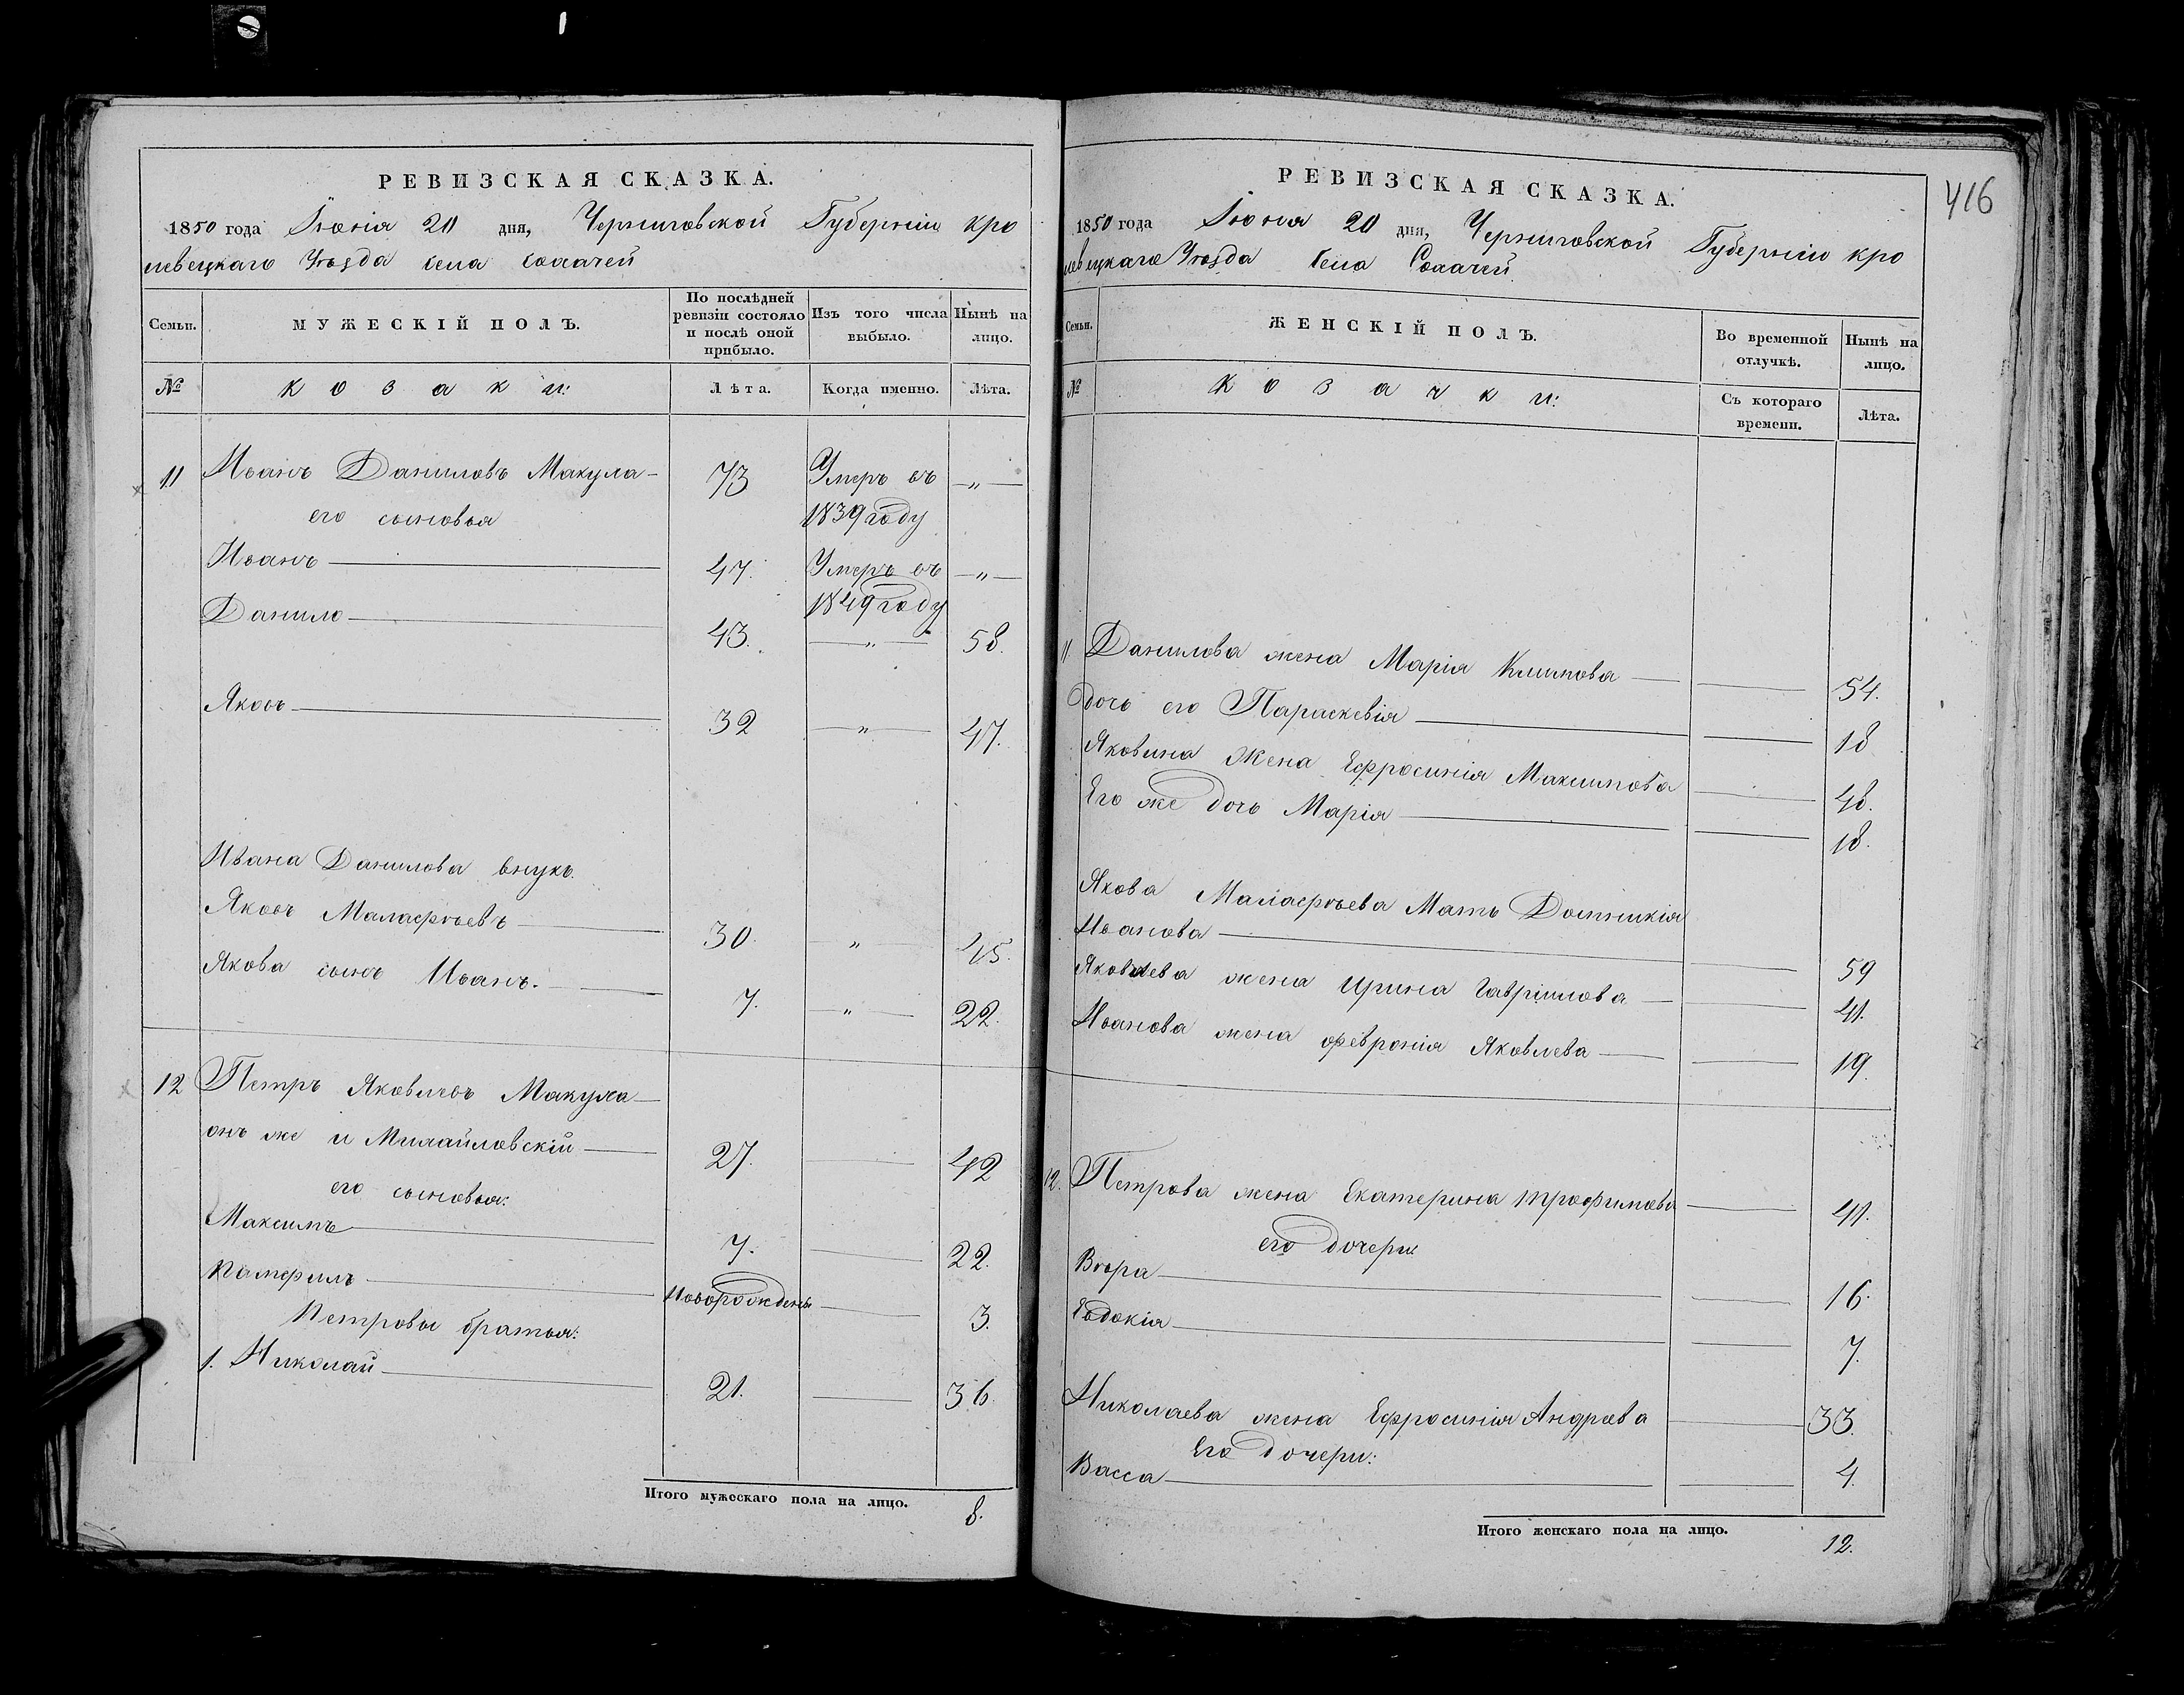 РЕВИЗСКАЯ СКАЗКА.
1850 года Іюнія 20 дня, Черниговской Губерніи кро
левецкаго Уѣзда села Сохачей
Семьи.
МУЖЕСКІЙ ПОЛЪ.
По послѣдней ревизіи состояло и послѣ оной прибыло.
Изъ того числа выбыло.
Нынѣ на лицо.
№
козаки:
Лѣта.
Когда именно.
Лѣта.
11 Иванъ Даниловъ Макуха 73 Умеръ въ „
его сыновья 1839 году
Иванъ 47. Умеръ въ „
1849 году
Данило 43. „ 58.
Яковъ 32 „ 47.
Ивана Данилова внукъ.
Яковъ Малафѣевъ 30. „ 45.
Якова сынъ Иванъ. 7. „ 22.
12 Петръ Яковлевъ Макуха
онъ же и Михайловскій 27. 42
его сыновья:
Максимъ 7. 22.
Памфилъ Новорожденъ 3.
Петровы братья:
1. Николай 21. 36.
Итого мужескаго пола на лицо. 8.
416
РЕВИЗСКАЯ СКАЗКА.
1850 года Іюня 20 дня, Черниговской Губерніи кро
левецкаго Уѣзда села Сохачей
Семьи.
ЖЕНСКІЙ ПОЛЪ.
Во временной отлучкѣ.
Нынѣ на лицо.
№
козачки:
Съ котораго времени.
Лѣта.
11 Данилова жена Марія Климова 54.
дочь его Параскевія 18
Яковина Жена Ефросинія Максимова 48.
Его же дочь Марія 18.
Якова Малафѣева Мать Домникія
Иванова 59
Яковлева жена Ирина Гавріилова 41.
Иванова жена Февронія Яковлева 19.
12. Петрова жена Екатерина Трофимова 41.
его дочери
Вѣра 16.
Евдокія 7.
Николаева жена Ефросинія Андрѣева 33.
Его дочери:
Васса 4.
Итого женскаго пола на лицо. 12.